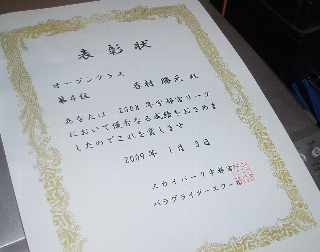 表彰状
オープンクラス
第4位 吉村 勝元 殿
あなたは 2008 年宇都宮リーグ
において優秀なる成績をおさめま
したのでこれを賞します
2009年 1月 3日
スカイパーク宇都宮
パラグライダースクール